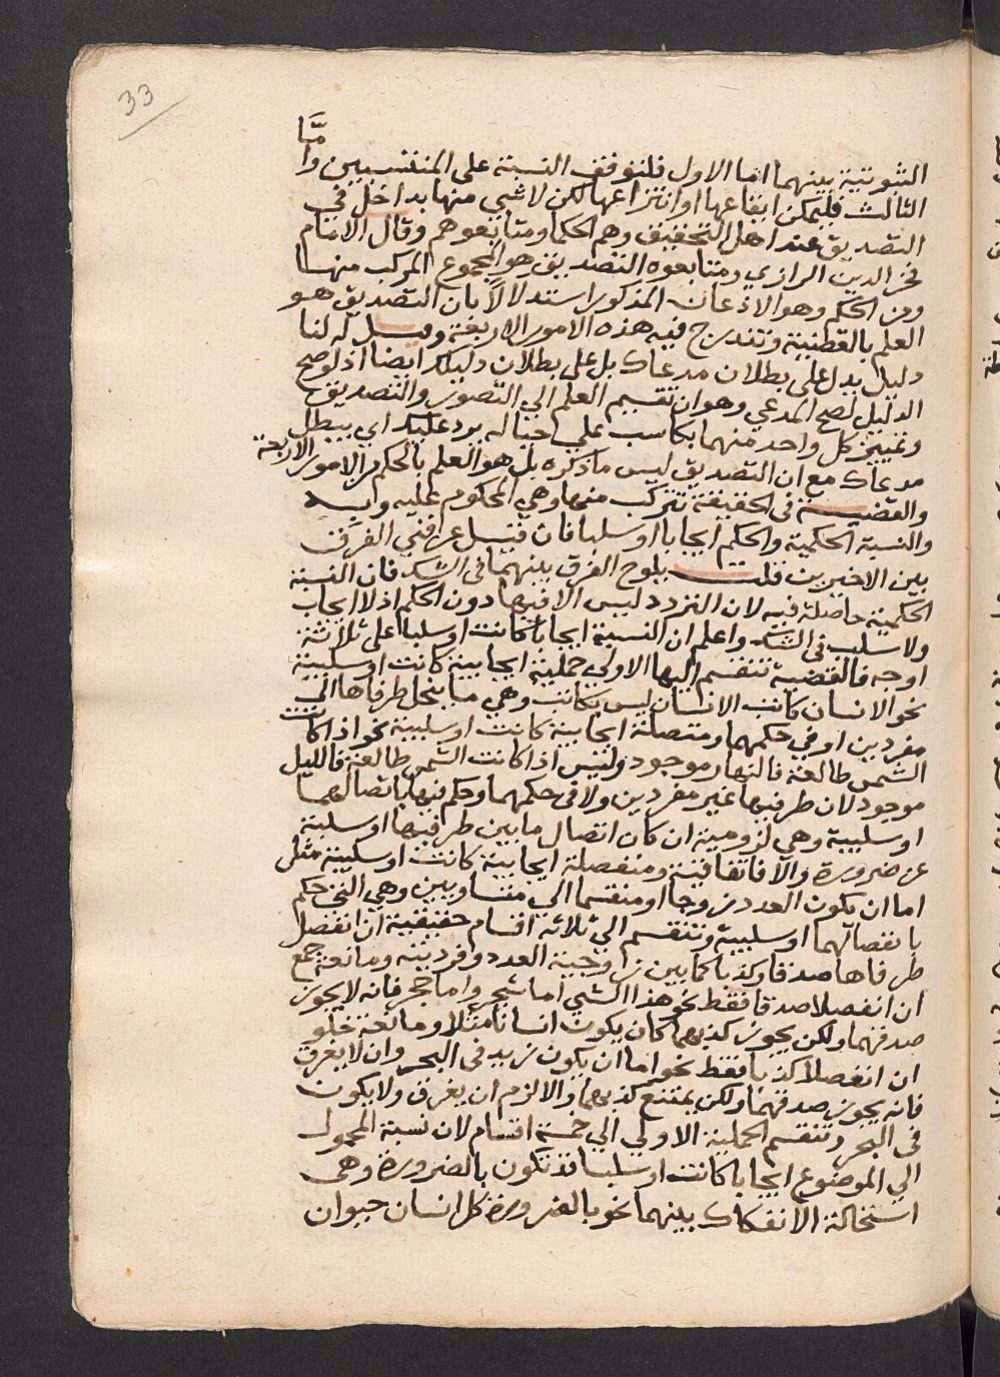 33
الثبوتية بينهما اما الاول فلتوقف النسبة على المنتسبين واما
الثالث فليمكن ايقاعها او انتزاعها لكن لا شي منها بداخل في
التصديق عند اهل التحقيق وهم الحكما ومتابعوهم وقال الامام
فخر الدين الرازي ومتابعوه التصديق هو المجموع المركب منها
ومن الحكم وهو الاذعان المذكور استدلالا بان التصديق هو
العلم بالقضية وتندرج فيه هذه الامور الاربعة وقيل له لنا
دليل يدل على بطلان مدعاك بل على بطلان دليلك ايضا اذ لو صح
الدليل لصح المدعي وهو ان تقسيم العلم الي التصور والتصديق
وتمييز كل واحد منهما بكاسب علي حياله يرد عليك اي يبطل
مدعاك مع ان التصديق ليس ما ذكره بل هو العلم بالحكم والامور الاربعة
والقضية في الحقيقة تتركب منها وهي المحكوم عليه وبه
والنسبة الحكمية والحكم ايجابا او سلبا فان قيل عرفني الفرق
بين الاخيرين قلت يلوح الفرق بينهما في الشك فان النسبة
الحكمية حاصلة فيه لان التردد ليس الا فيها دون الحكم اذ لا ايجاب
ولا سلب في الشك واعلم ان النسبة ايجابا كانت او سلبا على ثلاثة
اوجه فالقضية تنقسم اليها الاولي حملية ايجابية كانت او سلبية
نحو الانسان كاتب الانسان ليس بكاتب وهي ما ينحل طرفاها الى
مفردين او في حكمهما ومتصلة ايجابية كانت او سلبية نحو اذا كانت
الشمس طالعة فالنهار موجود وليس اذا كانت الشمس طالعة فالليل
موجود لان طرفيها غير مفردين ولا في حكمهما وحكم فيها باتصالهما
او سلبية وهي لزومية ان كان اتصال ما بين طرفيها او سلبته
عن ضرورة والا فاتفاقية ومنفصلة ايجابية كانت او سلبية مثل
اما ان يكون العدد زوجا او منقسما الي متساويين وهي التي حكم
بانفصالهما او سلبية وتنقسم الي ثلاثه اقسام حقيقية ان انفصل
طرفاها صدقا وكذبا كما بين زوجية العدد وفرديته ومانعة جمع
ان انفصلا صدقا فقط نحو هذا الشي اما شجر واما حجر فانه لا يجوز
صدقهما ولكن يجوز كذبهما كان يكون انسانا مثلا ومانعة خلو
ان انفصلا كذبا فقط نحو اما ان يكون زيد في البحر وان لا يغرق
فانه يجوز صدقهما ولكن يمتنع كذبهما والا لزم ان يغرق ولا يكون
في البحر وتنقسم الحملية الاولي الي خمسة اقسام لان نسبة المحمول
الي الموضوع ايجابا كانت او سلبا قد تكون بالضرورة وهي
استحالة الانفكاك بينهما نحو بالضرورة كل انسان حيوان